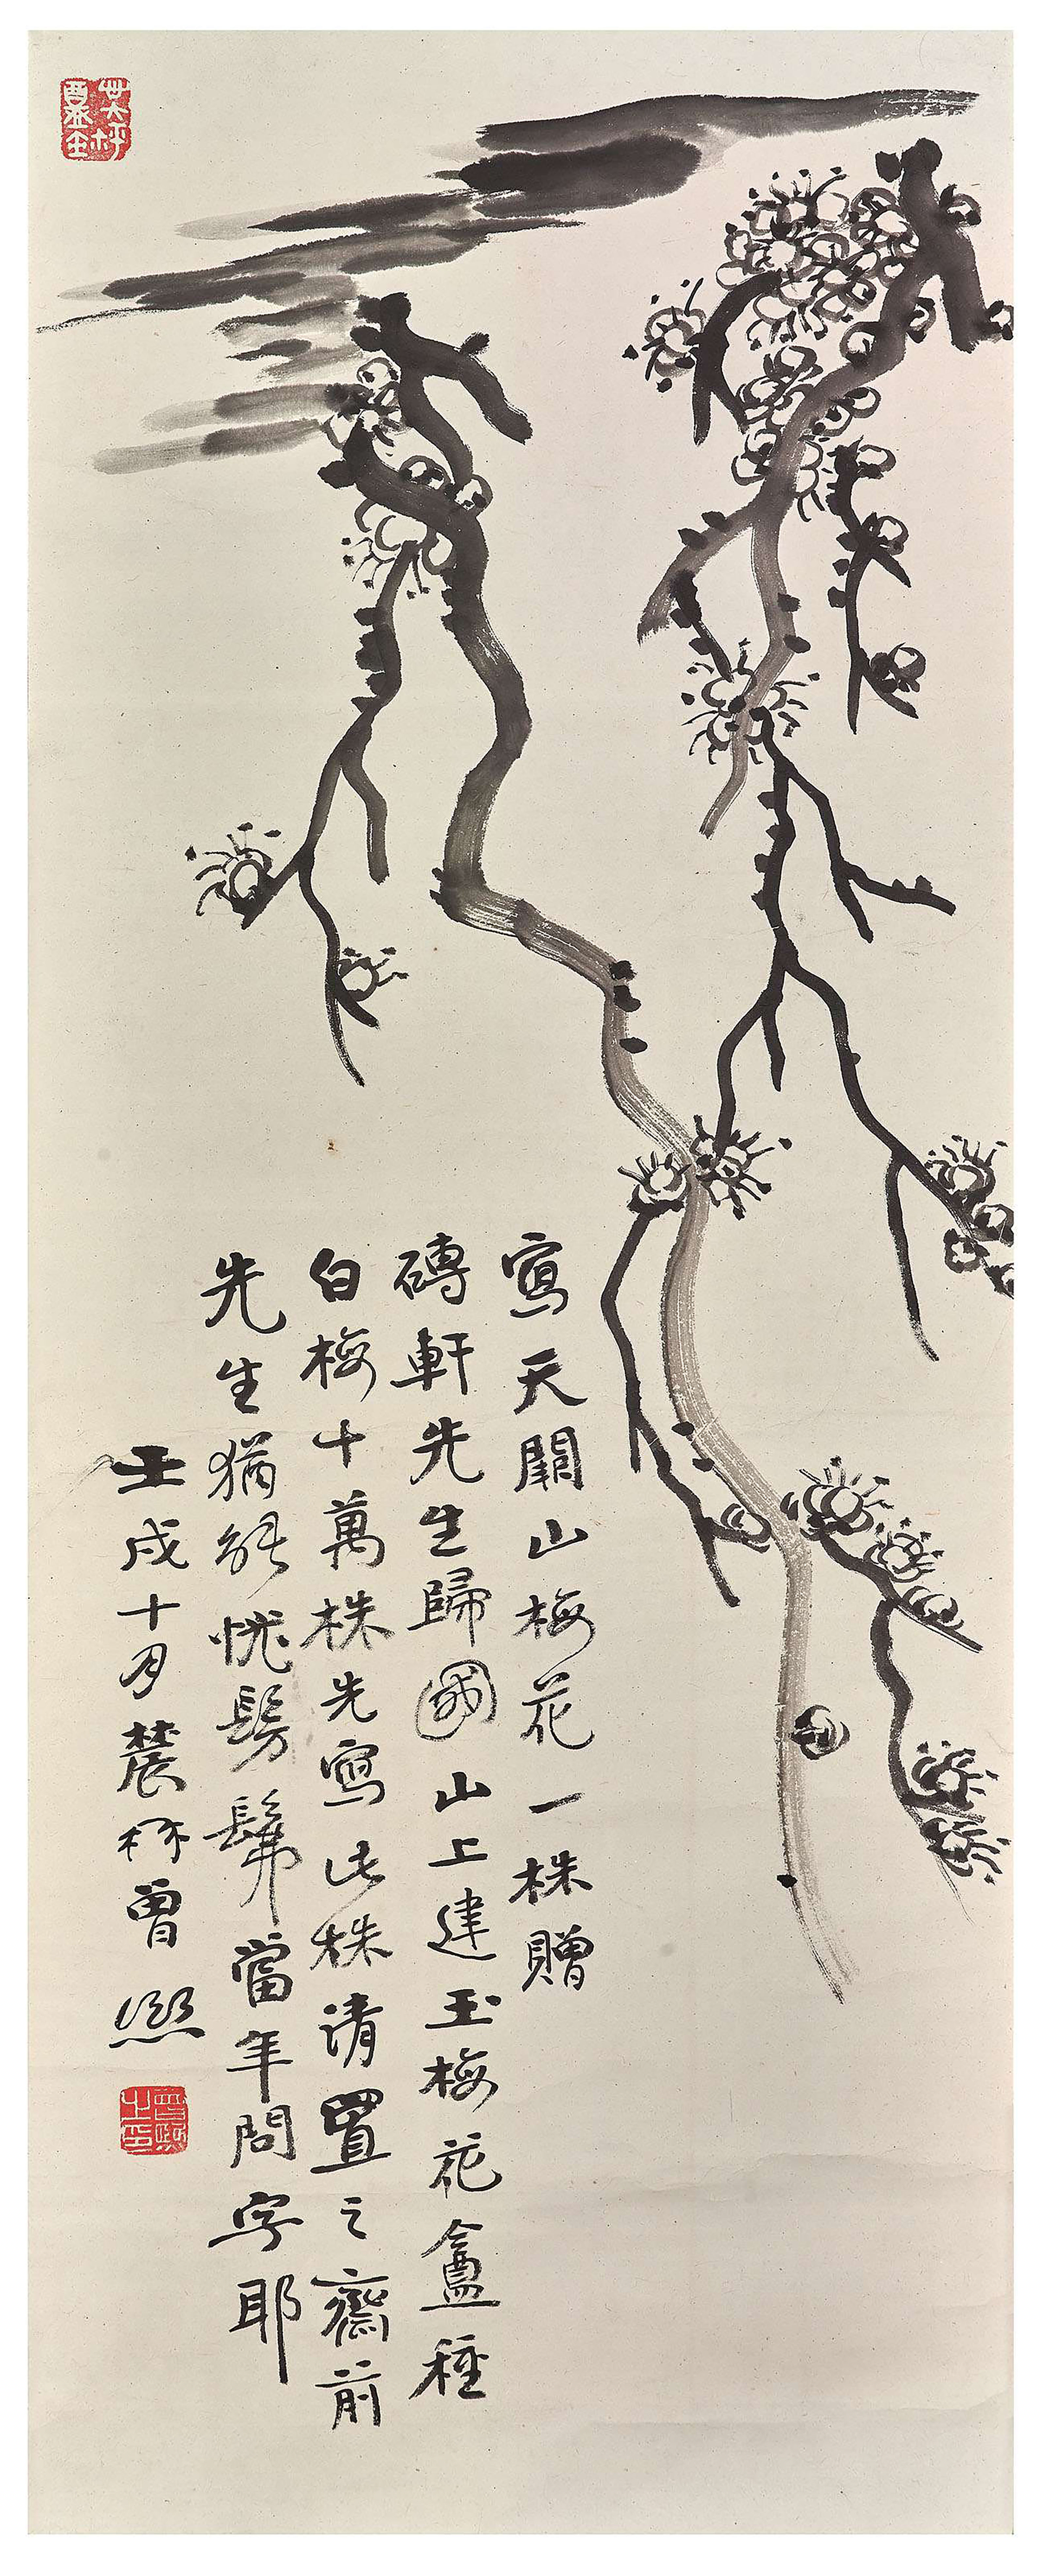 寫天關山梅花一株贈
磚軒先生歸國山上建玉梅花盦種
白梅十萬株先寫此株请置之齋前
先生猶能恍髣髴當年問字耶
壬戌十月農髯曾熙